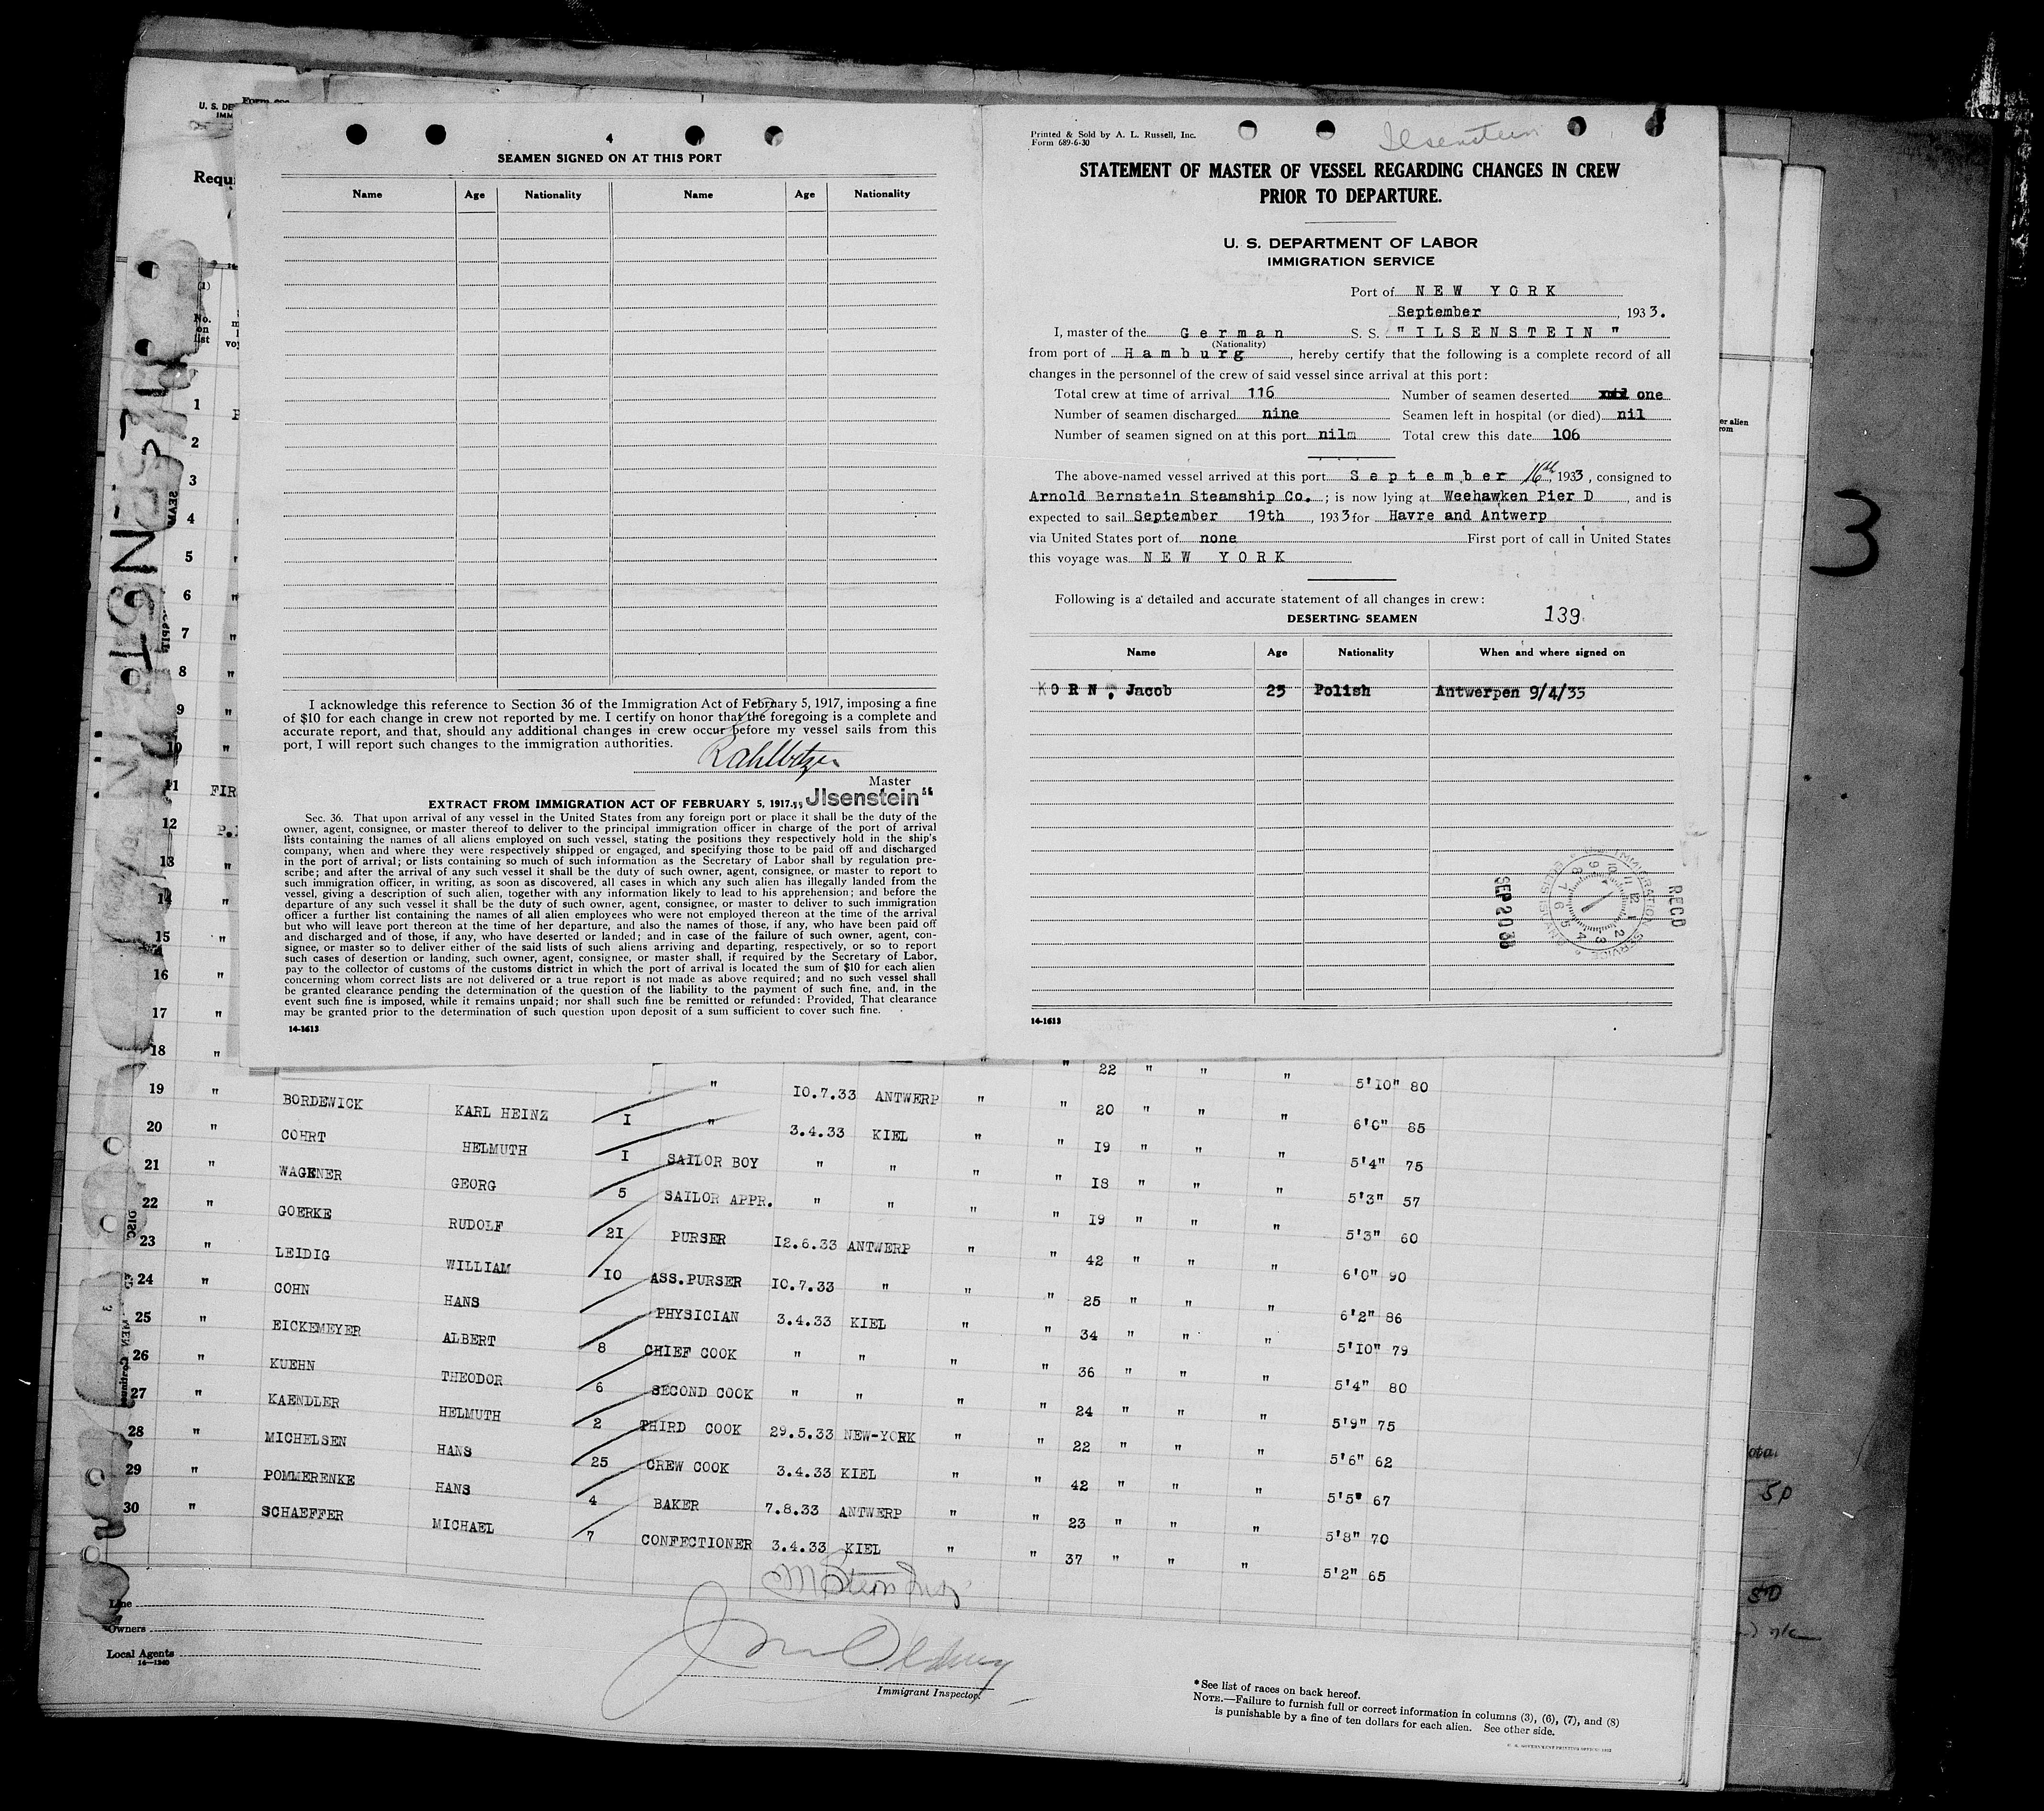 4
SEAMEN SIGNED ON AT THIS PORT
Name Age Nationality Name Age Nationality
I acknowledge this reference to Section 36 of the Immigration Act of February 5, 1917, imposing a fine
of $10 for each change in crew not reported by me. I certify on honor that the foregoing is a complete and
accurate report, and that, should any additional changes in crew occur before my vessel sails from this
port, I will report such changes to the immigration authorities.
Master
EXTRACT FROM IMMIGRATION ACT OF FEBRUARY 5, 1917.
„Jlsenstein“
Sec. 36. That upon arrival of any vessel in the United States from any foreign port or place it shall be the duty of the
owner, agent, consignee, or master thereof to deliver to the principal immigration officer in charge of the port of arrival
lists containing the names of all aliens employed on such vessel, stating the positions they respectively hold in the ship's
company, when and where they were respectively shipped or engaged, and specifying those to be paid off and discharged
in the port of arrival; or lists containing so much of such information as the Secretary of Labor shall by regulation pre-
scribe; and after the arrival of any such vessel it shall be the duty of such owner, agent, consignee, or master to report to
such immigration officer, in writing, as soon as discovered, all cases in which any such alien has illegally landed from the
vessel, giving a description of such alien, together with any information likely to lead to his apprehension; and before the
departure of any such vessel it shall be the duty of such owner, agent, consignee, or master to deliver to such immigration
officer a further list containing the names of all alien employees who were not employed thereon at the time of the arrival
but who will leave port thereon at the time of her departure, and also the names of those, if any, who have been paid off
and discharged and of those, if any, who have deserted or landed; and in case of the failure of such owner, agent, con-
signee, or master so to deliver either of the said lists of such aliens arriving and departing, respectively, or so to report
such cases of desertion or landing, such owner, agent, consignee, or master shall, if required by the Secretary of Labor,
pay to the collector of customs of the customs district in which the port of arrival is located the sum of $10 for each alien
concerning whom correct lists are not delivered or a true report is not made as above required; and no such vessel shall
be granted clearance pending the determination of the question of the liability to the payment of such fine, and, in the
event such fine is imposed, while it remains unpaid; nor shall such fine be remitted or refunded: Provided, That clearance
may be granted prior to the determination of such question upon deposit of a sum sufficient to cover such fine.
14-1613
Printed & Sold by A. L. Russell, Inc.
Form 689-6-30
Ilsenstein
STATEMENT OF MASTER OF VESSEL REGARDING CHANGES IN CREW
PRIOR TO DEPARTURE.
U. S. DEPARTMENT OF LABOR
IMMIGRATION SERVICE
Port of NEW YORK
September, 1933.
I, master of the German S. S. " ILSENSTEIN "
(Nationality)
from port of Hamburg, hereby certify that the following is a complete record of all
changes in the personnel of the crew of said vessel since arrival at this port:
Total crew at time of arrival 116 Number of seamen deserted one
Number of seamen discharged nine Seamen left in hospital (or died) nil
Number of seamen signed on at this port nilm Total crew this date 106
The above-named vessel arrived at this port September 16th, 1933, consigned to
Arnold Bernstein Steamship Co.; is now lying at Weehawken Pier D, and is
expected to sail September 19th, 1933 for Havre and Antwerp
via United States port of none First port of call in United States
this voyage was NEW YORK
Following is a detailed and accurate statement of all changes in crew:
139
DESERTING SEAMEN
Name Age Nationality When and where signed on
KORN, Jacob 25 Polish Antwerpen 9/4/33
REC'D
IMMIGRATION SERVICE
SEP 20 33
14-1613
ILSENSTEIN
3
U. S. DE
IMM
Requ
(1)
No.
on
list
1
2
3
4
5
6
7
8
9
10
11 FIR
12 P.
13 "
14 "
15 "
16 "
17 "
18 " " " 22 " " " 5'10" 80
19 " BORDEWICK KARL HEINZ 1 " 10.7.33 ANTWERP " " 20 " " " 6'0" 85
20 " COHRT HELMUTH 1 SAILOR BOY 3.4.33 KIEL " " 19 " " 5'4" 75
21 " WAGENER GEORG 5 SAILOR APPR. " " " " 18 " " " 5'3" 57
22 " GOERKE RUDOLF 21 PURSER " " " " 19 " " " 5'3" 60
23 " LEIDIG WILLIAM 10 ASS.PURSER 12.6.33 ANTWERP " " 42 " " " 6'0" 90
24 " COHN HANS PHYSICIAN 10.7.33 " " " 25 " " " 6'2" 86
25 " EICKEMEYER ALBERT 8 CHIEF COOK 3.4.33 KIEL " " 34 " " " 5'10" 79
26 " KUEHN THEODOR 6 SECOND COOK " " " " 36 " " " 5'4" 80
27 " KAENDLER HELMUTH 2 THIRD COOK " " " " 24 " " " 5'9" 75
28 " MICHELSEN HANS 25 CREW COOK 29.5.33 NEW-YORK " " 22 " " " 5'6" 62
29 " POMMERENKE HANS 4 BAKER 3.4.33 KIEL " " 42 " " " 5'5" 67
30 " SCHAEFFER MICHAEL 7 CONFECTIONER 7.8.33 ANTWERP " " 23 " " " 5'8" 70
3.4.33 KIEL " " 37 " " " 5'2" 65
Line
Owners
Local Agents
14-1240
Immigrant Inspector.
*See list of races on back hereof.
NOTE.—Failure to furnish full or correct information in columns (3), (6), (7), and (8)
is punishable by a fine of ten dollars for each alien. See other side.